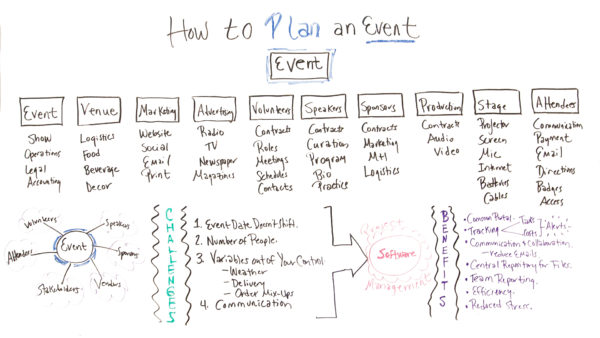 How to Plan an Event
Event
Event
Show
Operations
Legal
Accounting
Venue
Logistics
Food
Beverage
Decor
Marketing
Website
Social
Email
Print
Advertising
Radio
TV
Newspaper
Magazines
Volunteers
Contracts
Roles
Meetings
Schedules
Contacts
Speakers
Contracts
Curation
Program
Bio
Practice
Sponsors
Contracts
Marketing
Mtl
Logistics
Production
Contracts
Audio
Video
Stage
Projector
Screen
Mic
Internet
Batteries
Cables
Attendees
Communication
Payment
Email
Directions
Badges
Access
Event
Volunteers
Speakers
Sponsors
Vendors
Stakeholders
Attendees
CHALLENGES
1. Event Date Doesn't Shift.
2. Number of People.
3. Variables out of Your Control
- Weather
- Delivery
- Order Mix-Ups
4. Communication
Project
Software
Management
BENEFITS
• Common Portal.
• Tracking
Tasks
Costs
Alerts
• Communication & Collaboration.
- reduce Emails
• Central Repository for Files.
• Team Reporting.
• Efficiency.
• Reduced Stress.